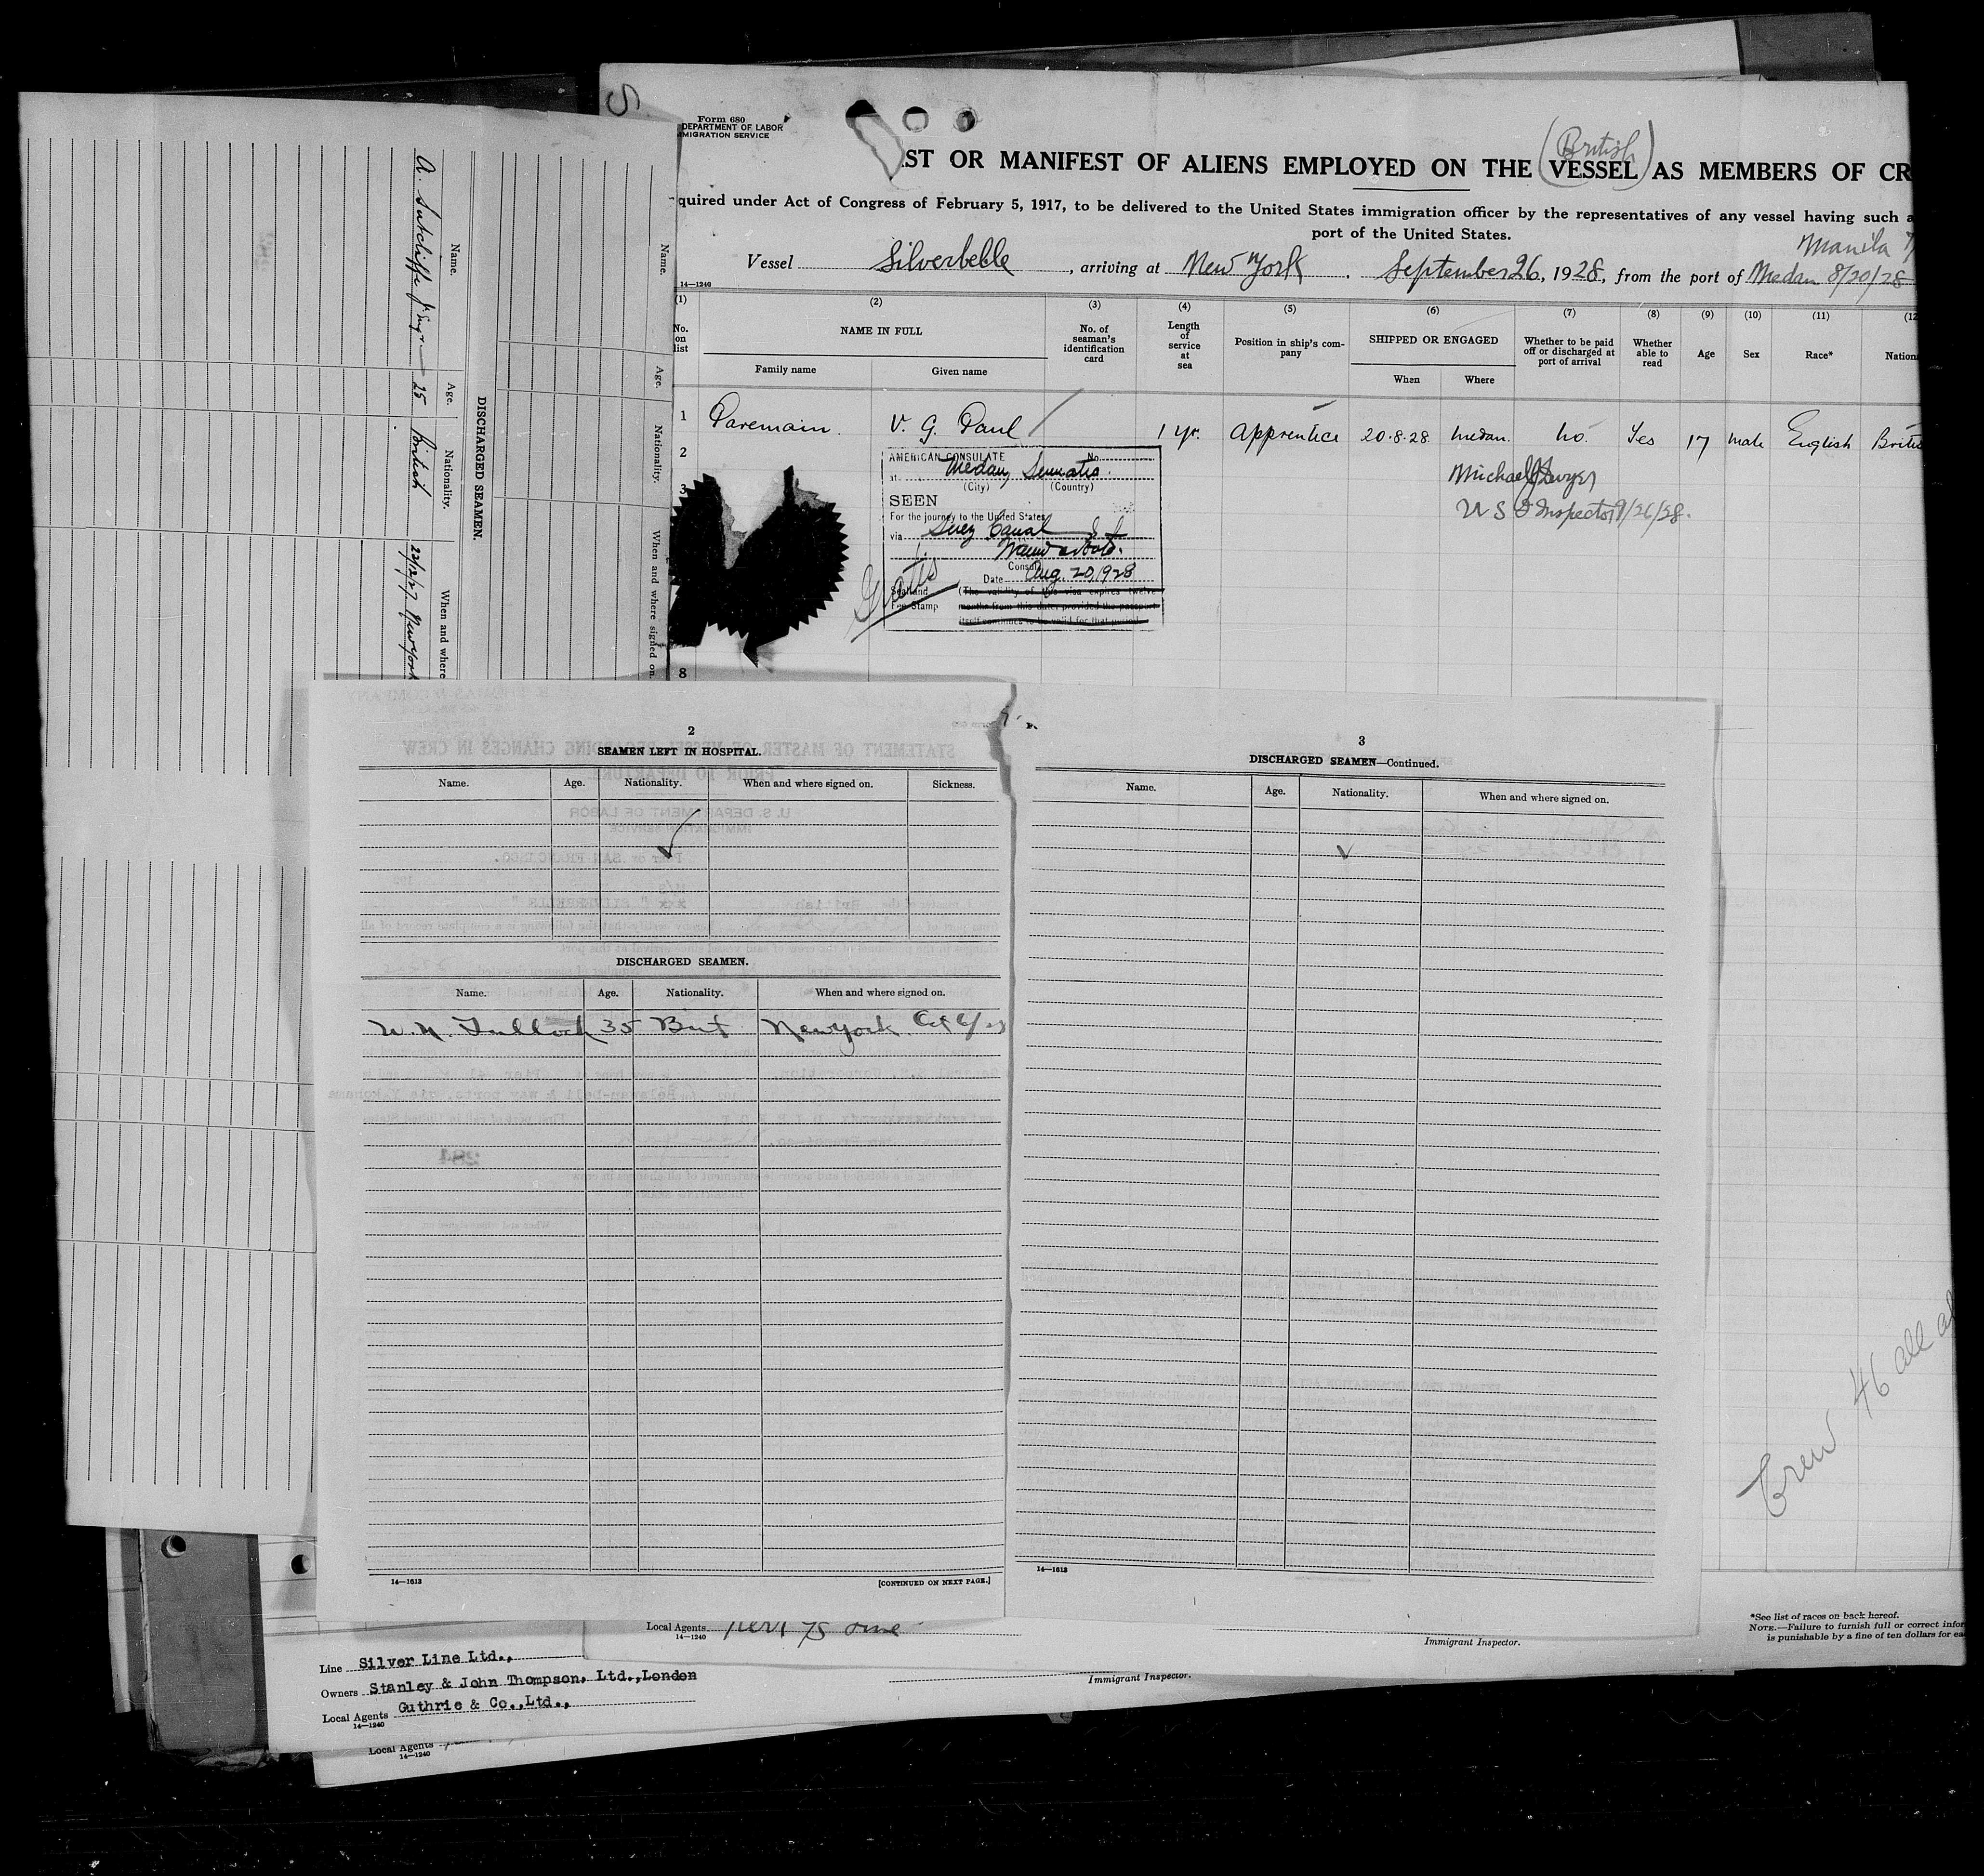 Form 680
DEPARTMENT OF LABOR
IMMIGRATION SERVICE
ST OR MANIFEST OF ALIENS EMPLOYED ON THE (VESSEL) AS MEMBERS OF CR
British
quired under Act of Congress of February 5, 1917, to be delivered to the United States immigration officer by the representatives of any vessel having such a
port of the United States.
Manila
Vessel Silverbelle, arriving at New York. September 26, 1928, from the port of Medan 8/20/28
14—1240
(1) (2) (3) (4) (5) (6) (7) (8) (9) (10) (11) (12
No. on list
NAME IN FULL
Family name
Given name
No. of seaman's identification card
Length of service at sea
Position in ship's company
SHIPPED OR ENGAGED
When
Where
Whether to be paid off or discharged at port of arrival
Whether able to read
Age
Sex
Race*
Nation
1 Paremain. V. G. Paul 1 yr. Apprentice 20.8.28 Medan. No. Yes 17 male English Britis
2
3
8
AMERICAN CONSULATE No.
at Medan, Sumatra.
(City) (Country)
SEEN
For the journey to the United States
via Suez Canal
Consul
Date Aug. 20, 1928
Seal and
Fee Stamp
(The validity of this visa expires twelve
months from this date, provided the passport
itself continues to be valid for that period.
Gratis
Michael J Dwyer
U S I Inspector 9/26/28.
Name.
Age.
Nationality.
When and where signed on.
DISCHARGED SEAMEN.
Name.
Age.
Nationality.
When and where
A. Sutcliffe Jr Eng. 25 British 22/12/27 New York
2
SEAMEN LEFT IN HOSPITAL.
Name. Age. Nationality. When and where signed on. Sickness.
DISCHARGED SEAMEN.
Name. Age. Nationality. When and where signed on.
W. N. Tulloch 35 Brit New York Oct 6/27
14—1613
[CONTINUED ON NEXT PAGE.]
3
DISCHARGED SEAMEN—Continued.
Name. Age. Nationality. When and where signed on.
14—1613
Crew 46 all
Local Agents
14—1240
Immigrant Inspector.
*See list of races on back hereof.
NOTE.—Failure to furnish full or correct infor
is punishable by a fine of ten dollars for ea
Line Silver Line Ltd.,
Owners Stanley & John Thompson, Ltd., London
Local Agents Guthrie & Co., Ltd.,
14—1240
Immigrant Inspector.
Local Agents
14—1240